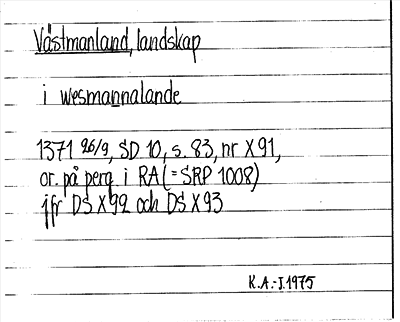 Västmanland, landskap
i wesmannalande
1371 26/9, SD 10, s. 83, nr X 91,
or. på perg. i RA (= SRP 1008)
jfr DS X 92 och DS X 93
K.A.-J. 1975